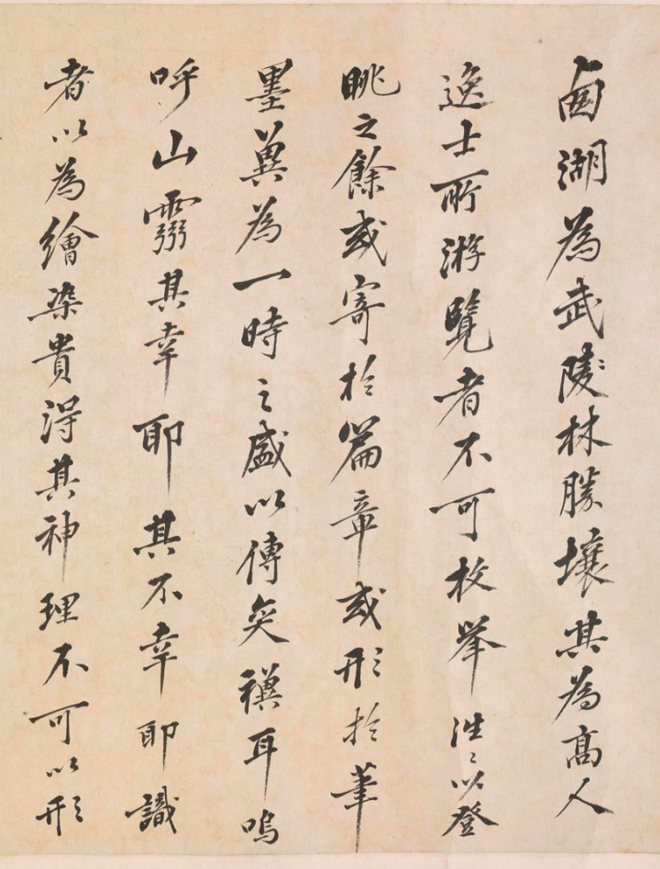 西湖為武陵林勝壤其為高人
逸士所游覽者不可枚舉往々以登
眺之餘或寄於篇章或形於筆
墨冀為一時之盛以傳奕禩耳嗚
呼山靈其幸耶其不幸耶識
者以為繪染貴得其神理不可以形